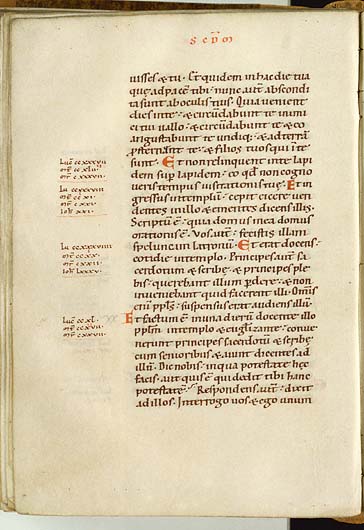 S C D M
uisses & tu. Et quidem in hac die tua
quę ad pacē tibi: nunc aut abscondi
ta sunt ab oculis tuis. Quia uenient
dies in te: & circūdabunt te inimi
ci tui uallo: & circūdabunt te & co
angustabunt te undiq: & ad terrā
p̄sternent te: & filios tuos qui in te
sunt. Et non relinquent in te lapi
dem sup lapidem: eo qd non cogno
ueris tempus uisitationis tuę. Et in
gressus in templum: cepit eicere uen
dentes in illo & ementes dicens illis.
Scriptū ē: quia domus mea domus
orationis ē. Vos aut fecistis illam
speluncam latronū. Et erat docens
cotidie in templo. Principes aut sa
cerdotum & scribę & principes ple
bis: querebant illum p̄dere: & non
inueniebant quid facerent illi. Omis
enī ppls: suspensus erat audiens illū.
Et factum ē in una dierū docente illo
pplm in templo & euglizante: conue
nerunt principes sacerdotū & scribę
cum senioribus & aiunt dicentes ad
illū. Dic nobis in qua potestate hęc
facis. aut quis ē qui dedit tibi hanc
potestatē. Respondens aut: dixit
ad illos. Interrogo uos & ego unum